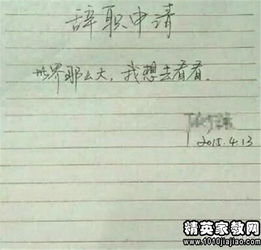 辞职申请
世界那么大，我想去看看。
2015.4.13
精英家教网
www.1010jiajiao.com